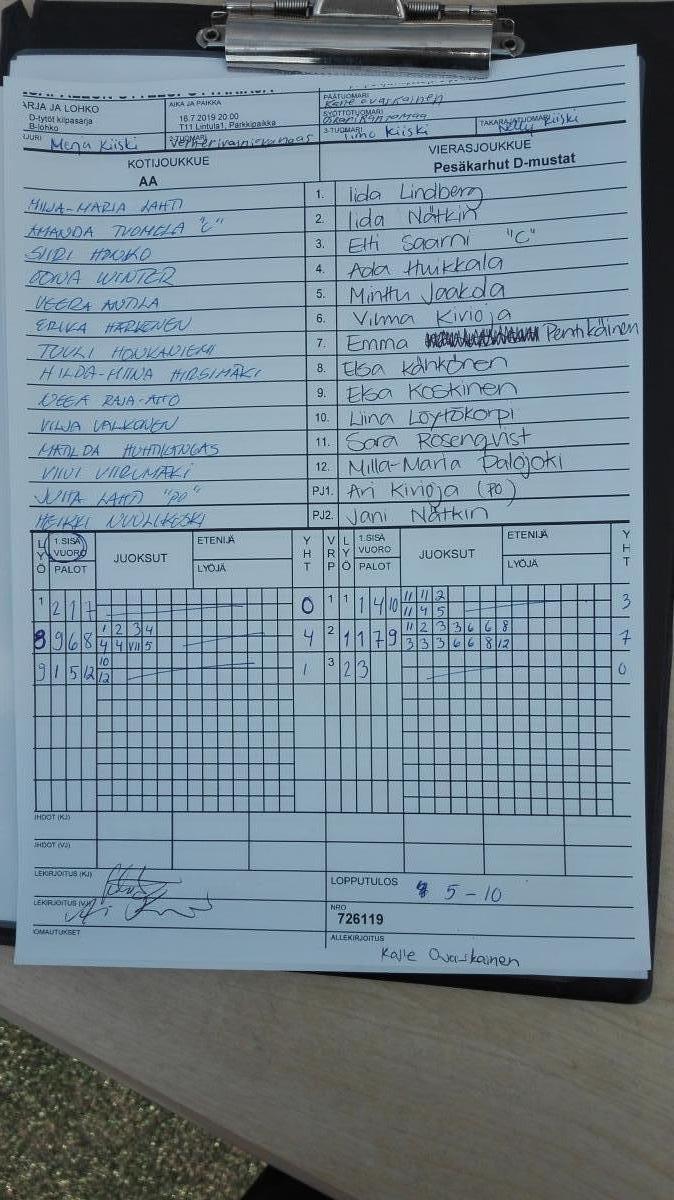 ARJA JA LOHKO
D-tytöt kilpasarja
B-lohko
AIKA JA PAIKKA
16.7.2019 20:00
T11 Lintula1, Parkkipaikka
PÄÄTUOMARI
Kalle Ovaskainen
SYÖTTÖTUOMARI
JURI Merja Kiiski
2-TUOMARI
3-TUOMARI Timo Kiiski
TAKARAJATUOMARI
Nelly Kiiski
KOTIJOUKKUE
AA
VIERASJOUKKUE
Pesäkarhut D-mustat
MINJA-MARIA LAHTI 1. Iida Lindberg
AMANDA TUOMELA "C" 2. Iida Nätkin
SIIRI HONKO 3. Elli Saarni "C"
OONA WINTER 4. Ada Huikkala
VEERA ANTILA 5. Minttu Jaakola
ERIKA HARKONEN 6. Vilma Kivioja
TUULI HONKANIEMI 7. Emma Pentikäinen
HILDA-MIINA HIRSIMÄKI 8. Elsa Kähkönen
NEEA RAJA-AHO 9. Elsa Koskinen
VILJA VALKONEN 10. Liina Löytökorpi
MATILDA HUHTILANGAS 11. Sara Rosenqvist
VIIVI VIIRUMÄKI 12. Milla-Maria Palojoki
JUHA LAHTI "PO" PJ1. Ari Kivioja (PO)
HEIKKI PJ2. Jani Nätkin
LYÖ 1.SISÄ VUORO PALOT JUOKSUT ETENIJÄ LYÖJÄ YHT VRP LYÖ 1.SISÄ VUORO PALOT JUOKSUT ETENIJÄ LYÖJÄ YHT
1 2 1 7 0 1 1 1 4 10 11 11 2 3
11 4 5
8 9 6 8 1 2 3 4 4 2 1 1 7 9 11 2 3 3 6 6 8 7
4 4 VII 5 3 3 3 6 6 8 12
9 1 5 12 10 1 3 2 3 0
12
JHDOT (KJ)
JHDOT (VJ)
LEKIRJOITUS (KJ)
LEKIRJOITUS (VJ)
LOPPUTULOS 5-10
NRO
726119
OMAUTUKSET
ALLEKIRJOITUS
Kalle Ovaskainen